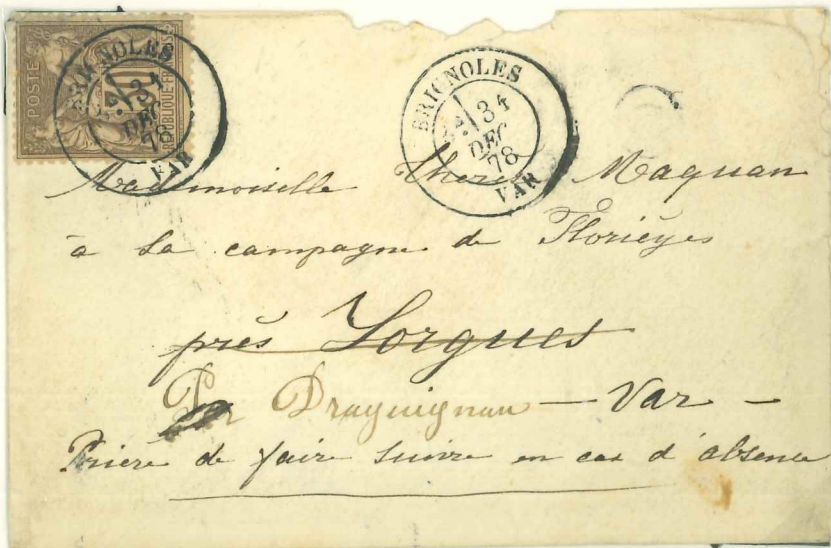 POSTE
RÉPUBLIQUE FRANÇAISE
BRIGNOLES
31
DEC
78
VAR
BRIGNOLES
31
DEC
78
VAR
Mademoiselle Maquan
à la campagne de Florièyes
près Lorgues
Par Draguignan - Var -
Prière de faire suivre en cas d'absence